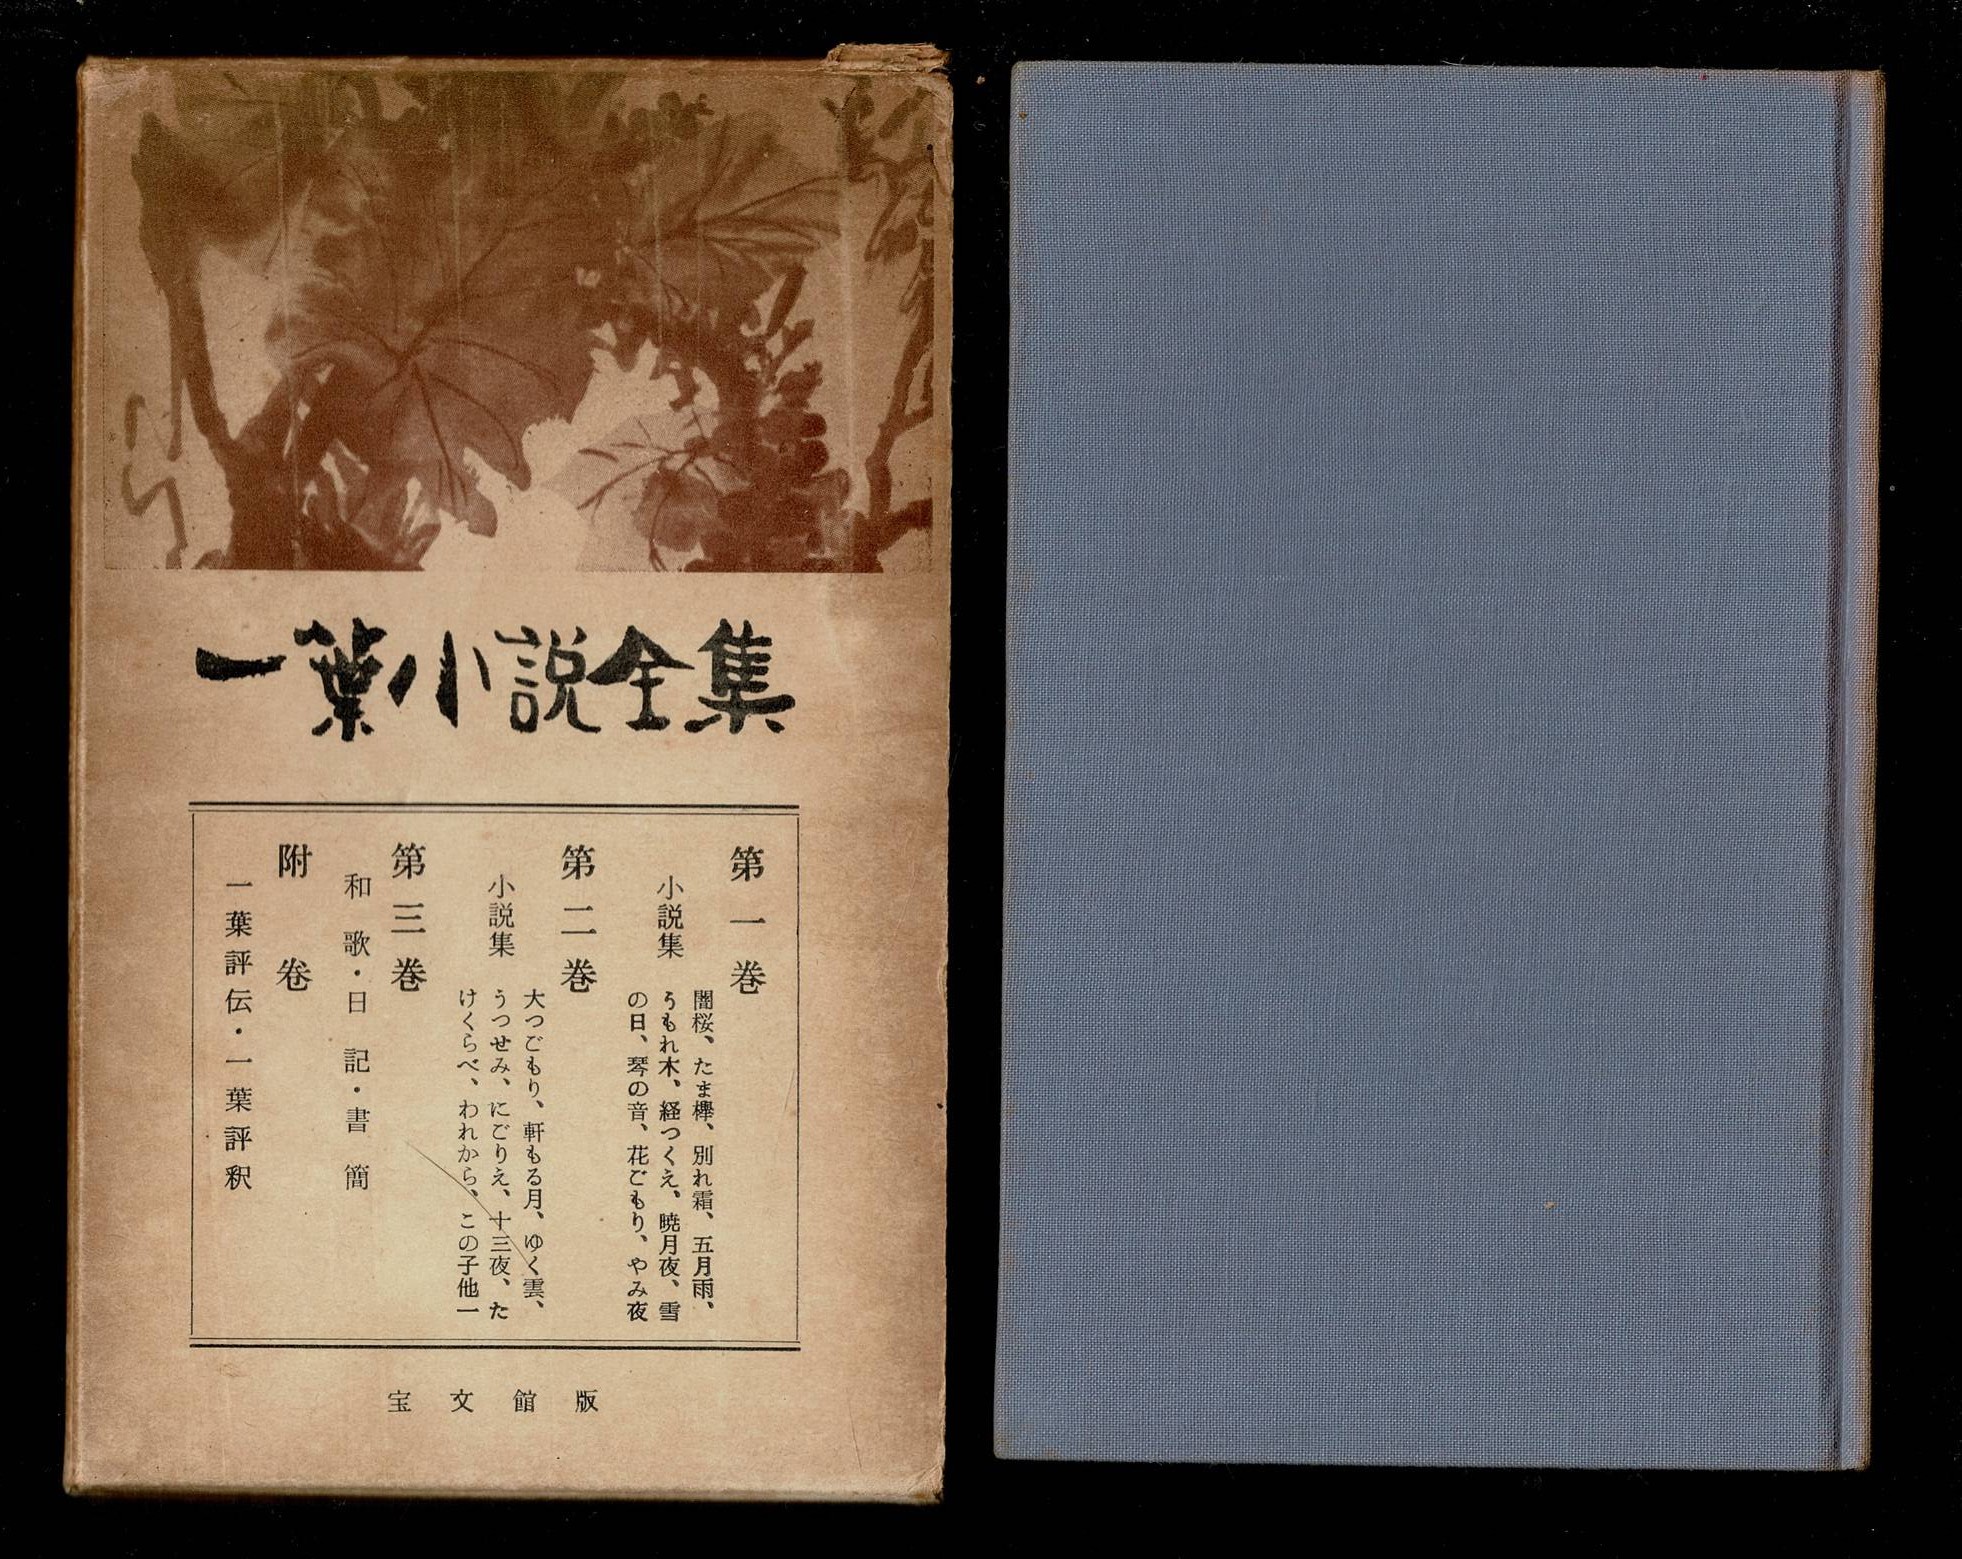 一葉小説全集
第一巻
小説集
闇桜、たま襷、別れ霜、五月雨、
うもれ木、経つくえ、暁月夜、雪
の日、琴の音、花ごもり、やみ夜
第二巻
小説集
大つごもり、軒もる月、ゆく雲、
うつせみ、にごりえ、十三夜、た
けくらべ、われから、この子他一
第三巻
和歌・日記・書簡
附巻
一葉評伝・一葉評釈
宝文館版